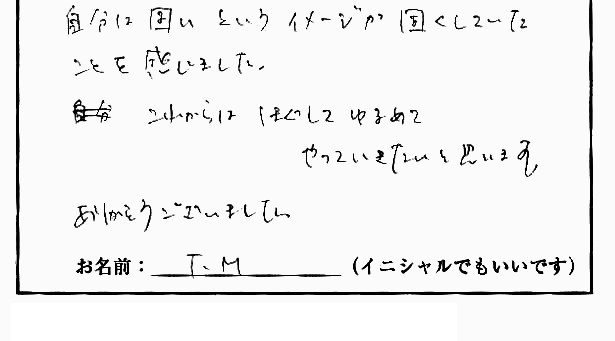 自分は固いというイメージが固くしていた
ことを感じました。
これからは ほぐして ゆるめて
やっていきたいと思います。
ありがとうございました。
お名前： T.M （イニシャルでもいいです）